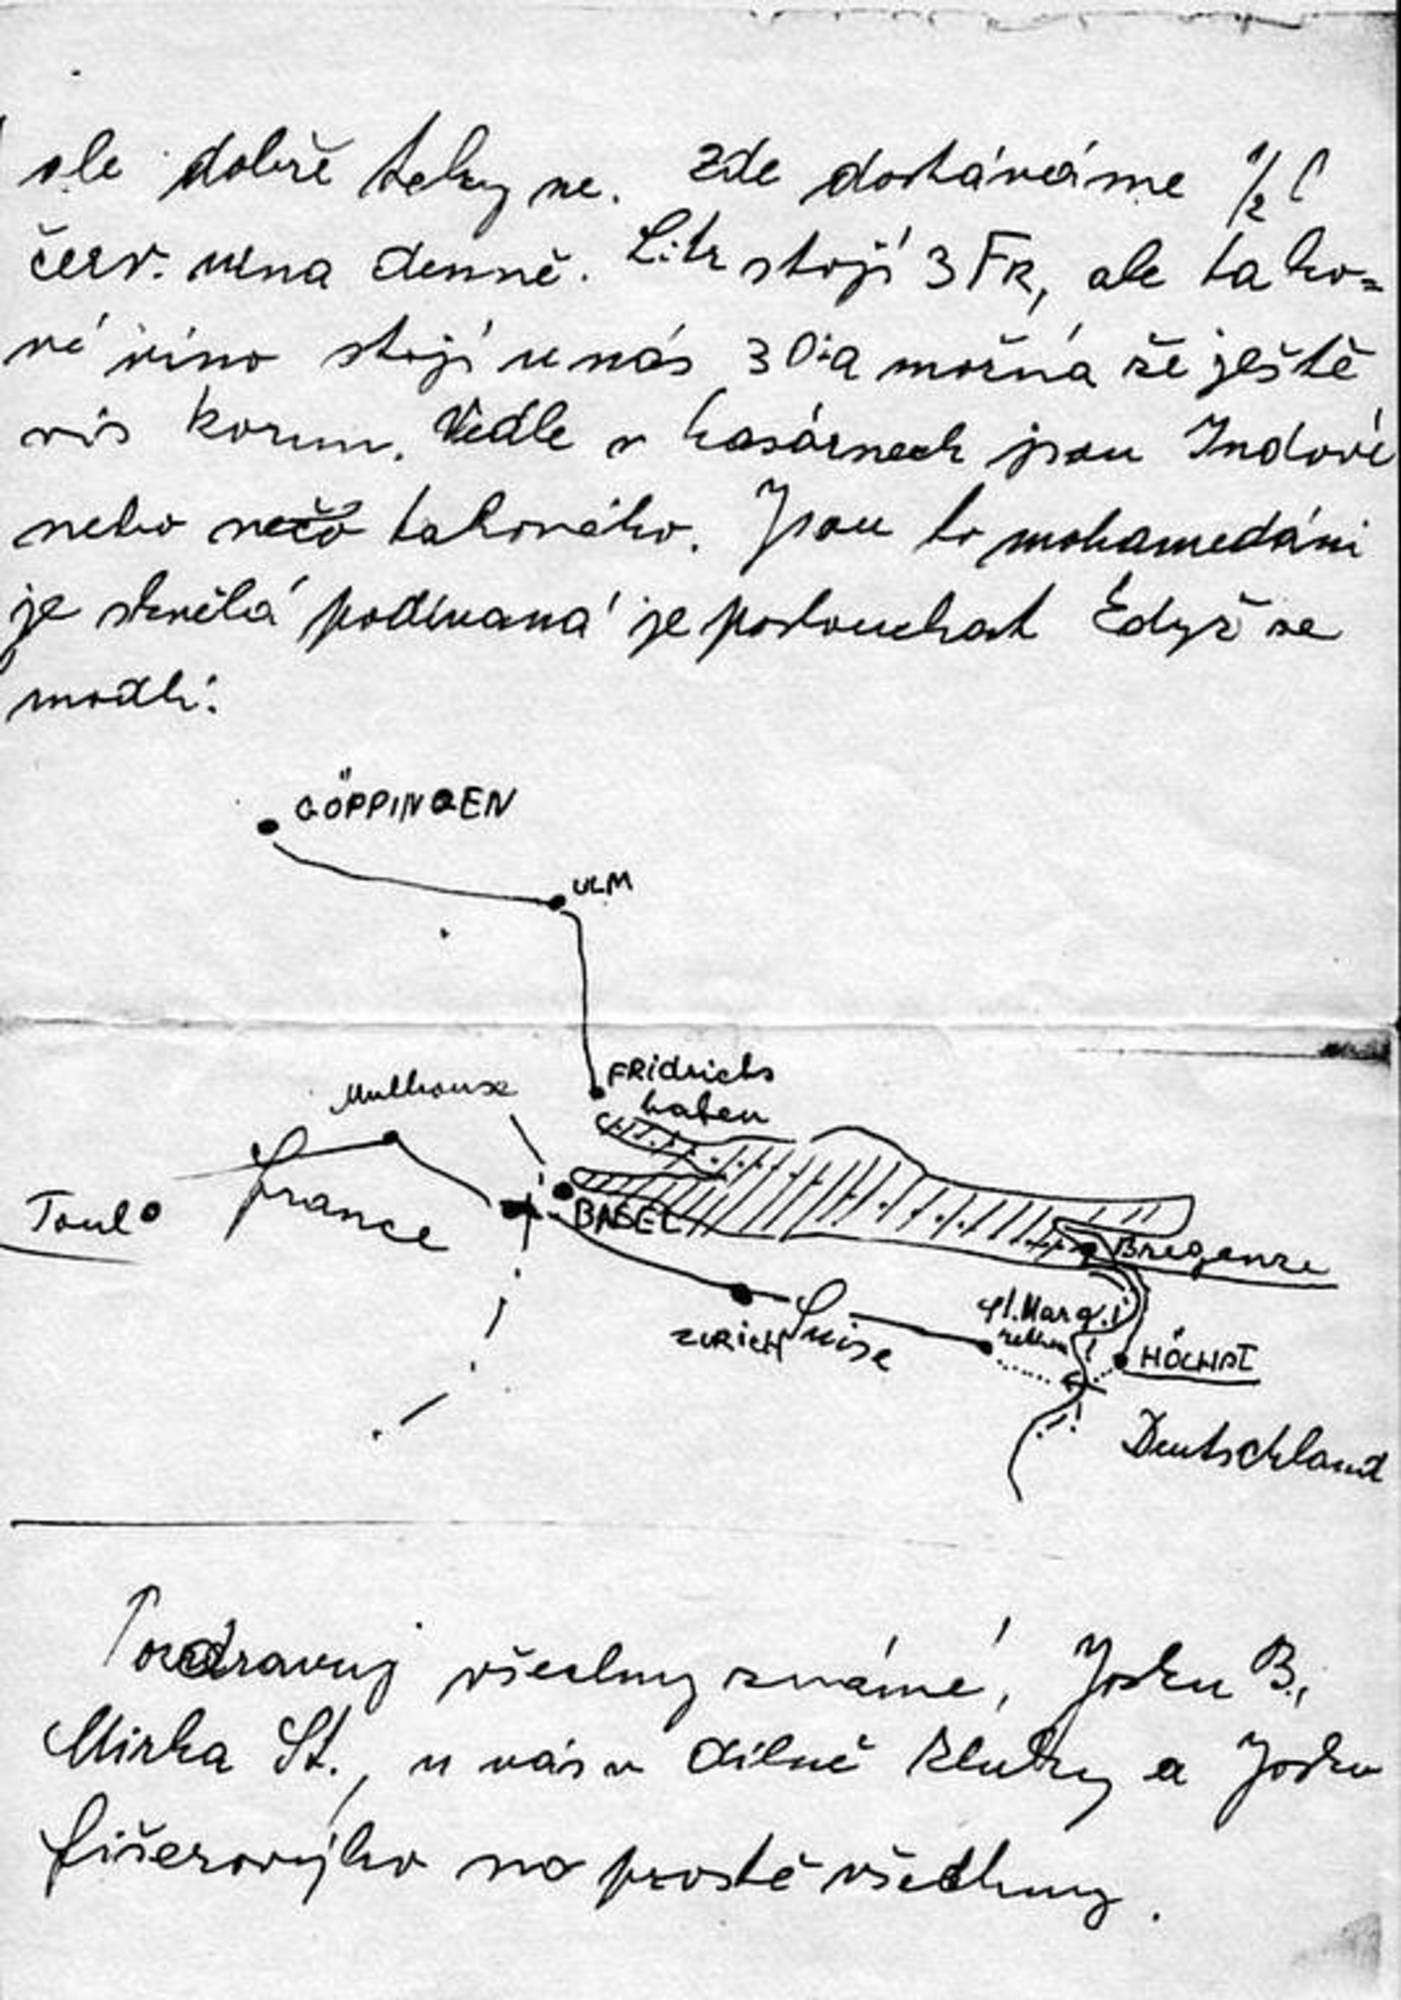 ale dobře taky ne. Zde dostáváme 1/2 l
červ. vína denně. Litr stojí 3 FR, ale tako=
vé víno stojí u nás 30 i a možná že ještě
víc korun. Vedle v kasárnech jsou Indové
nebo něco takového. Jsou to mohamedáni
je skvělá podívaná je poslouchat když se
modlí.
GÖPPINGEN
ULM
FRidrichs
hafen
Mulhouse
France
Toul
BASEL
Bregenze
ZURICH
Suise
St. Marg.
rethen
HÖCHST
Deutschland
Pozdravuj všechny známé, Josku B.,
Mirka St., u vás v dílně kluky a Josku
Fišerovýho no prostě všechny.